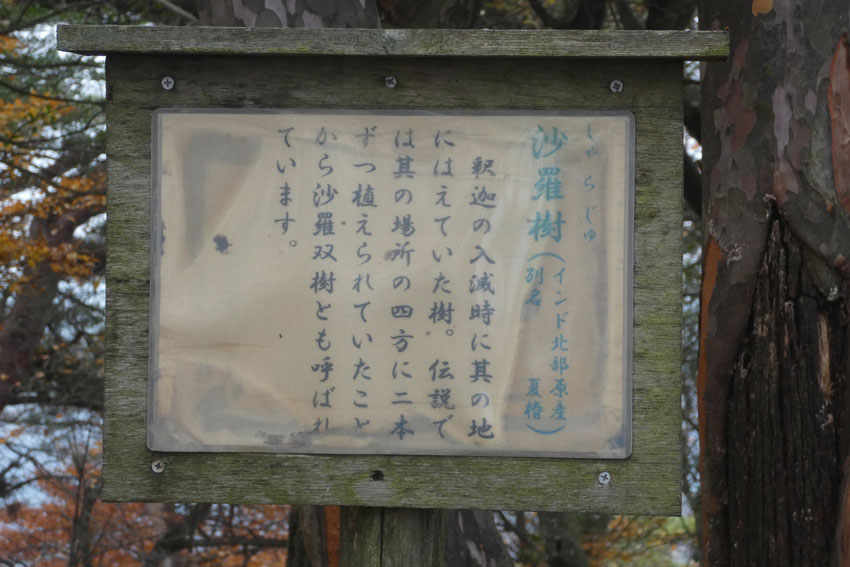 しゃらじゅ
沙羅樹(インド北部原産
別名 夏椿)
釈迦の入滅時に其の地
にはえていた樹。伝説で
は其の場所の四方に二本
ずつ植えられていたこと
から沙羅双樹とも呼ばれ
ています。